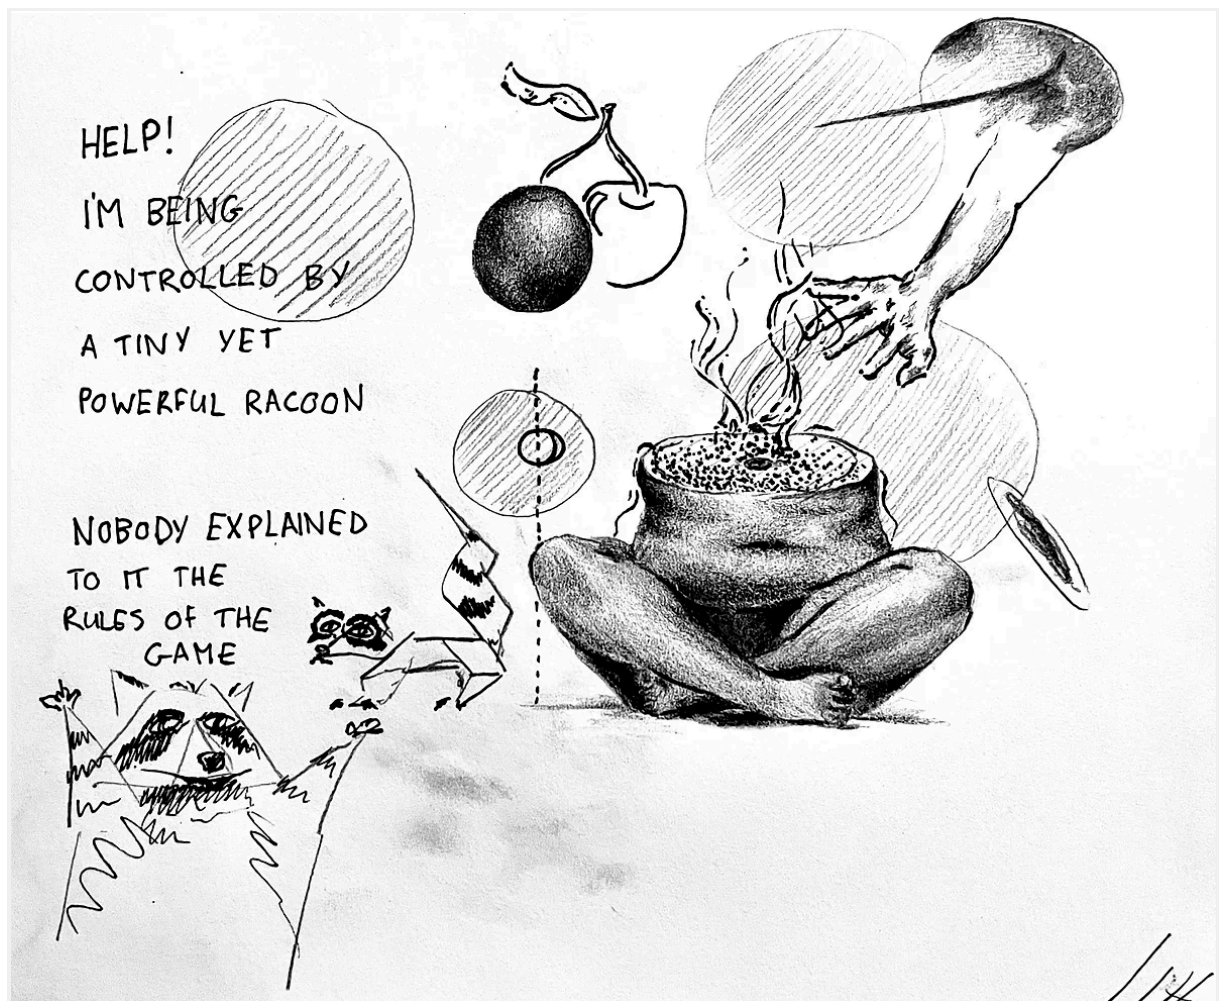 HELP!
I'M BEING
CONTROLLED BY
A TINY YET
POWERFUL RACOON
NOBODY EXPLAINED
TO IT THE
RULES OF THE
GAME